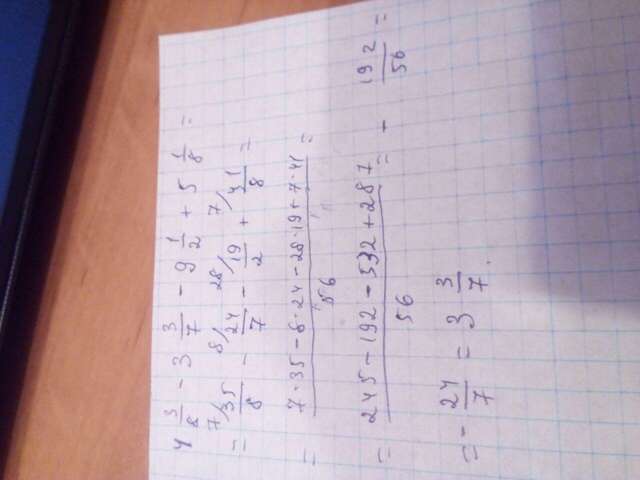 4 3/8 - 3 3/7 - 9 1/2 + 5 1/8 =
= 7/ 35/8 - 8/ 24/7 - 28/ 19/2 + 7/ 41/8 =
= (7·35-8·24-28·19+7·41)/56 =
= (245-192-532+287)/56 = - 192/56 =
= - 24/7 = 3 3/7.